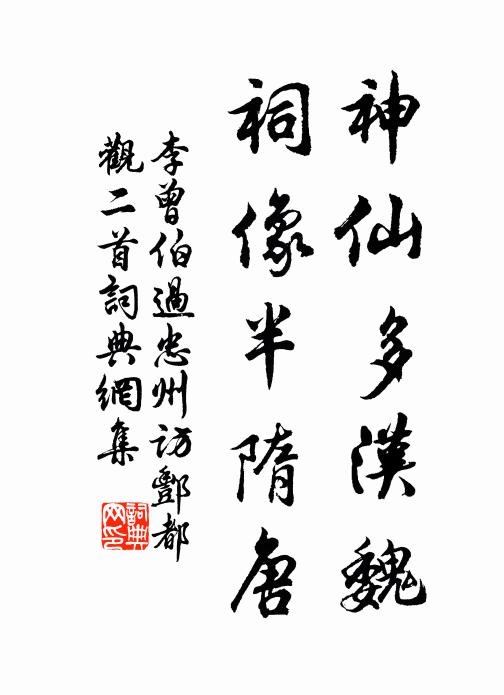 神仙多漢魏
祠像半隋唐
李曾伯過忠州訪酆都
觀二首詞典網集
詞典
网印